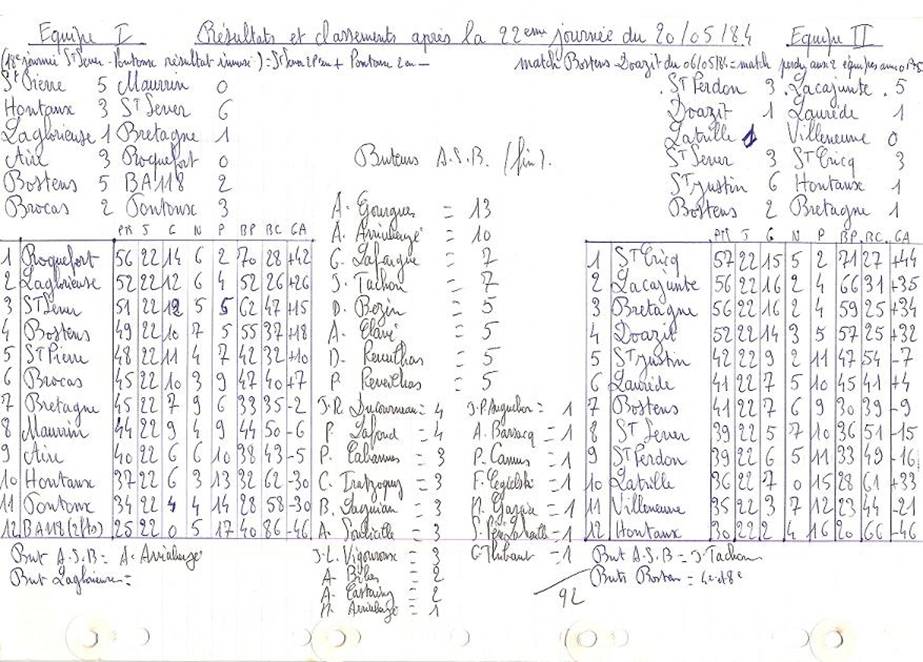 Equipe I Résultats et classements après la 22eme journée du 20/05/84 Equipe II
(18e journée St Sever - Pontonx résultat inversé) = St Sever 2P en + Pontonx 2 en -
match Bostens Doazit du 06/05/84 = match perdu aux 2 équipes
St Pierre 5 Maurrin 0
Hontanx 3 St Sever 6
Laglorieuse 1 Bretagne 1
Aire 3 Roquefort 0
Bostens 5 BA118 2
Brocas 2 Pontonx 3
St Perdon 3 Lacajunte 5
Doazit 1 Laurède 1
Latrille 1 Villeneuve 0
St Sever 3 St Cricq 3
St Justin 6 Hontanx 1
Bostens 2 Bretagne 1
PTS J G N P BP BC GA
1 Roquefort 56 22 14 6 2 70 28 +42
2 Laglorieuse 52 22 12 6 4 52 26 +26
3 St Sever 51 22 12 5 5 62 47 +15
4 Bostens 49 22 10 7 5 55 37 +18
5 St Pierre 48 22 11 4 7 42 32 +10
6 Brocas 45 22 10 3 9 47 40 +7
7 Bretagne 45 22 7 9 6 33 35 -2
8 Maurrin 44 22 9 4 9 44 50 -6
9 Aire 40 22 6 6 10 38 43 -5
10 Hontanx 37 22 6 3 13 32 62 -30
11 Pontonx 34 22 4 4 14 28 58 -30
12 BA118 25 22 0 5 17 40 86 -46
But A.S.B = A. Arrialengé
But Laglorieuse =
Buteurs A.S.B. (fin).
A. Gourgues = 13
A. Arrialengé = 10
G. Lafargue = 7
J. Tachon = 7
D. Bezin = 5
A. Clavé = 5
D. = 5
P. = 5
J.R. Ducourneau = 4
P. Lafond = 4
P. Cabannes = 3
C. = 3
B. Saguian = 3
A. = 3
J-L. Vigouroux = 3
A. Bibes = 2
A. Castaing = 2
Arrialengé = 1
J.P. = 1
A. Barsacq = 1
P. Camus = 1
F. = 1
Garcia = 1
S. = 1
C. Thibaut = 1
92
PTS J G N P BP BC GA
1 St Cricq 57 22 15 5 2 71 27 +44
2 Lacajunte 56 22 16 2 4 66 31 +35
3 Bretagne 56 22 16 2 4 59 25 +34
4 Doazit 52 22 14 3 5 57 25 +32
5 St Justin 42 22 9 2 11 47 54 -7
6 Laurède 41 22 7 5 10 45 41 +4
7 Bostens 41 22 7 6 9 30 39 -9
8 St Sever 39 22 5 7 10 36 51 -15
9 St Perdon 39 22 6 5 11 33 49 -16
10 Latrille 36 22 7 0 15 28 61 +33
11 Villeneuve 35 22 3 7 12 23 44 -21
12 Hontanx 30 22 2 4 16 20 66 -46
But A.S.B = J. Tachon
Buts Bostens =